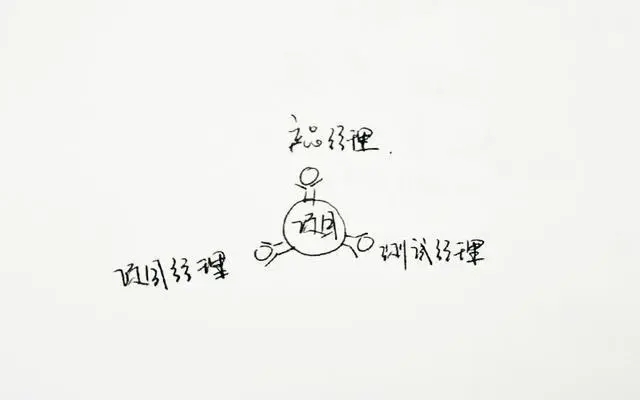 产品经理
项目
项目经理
测试经理